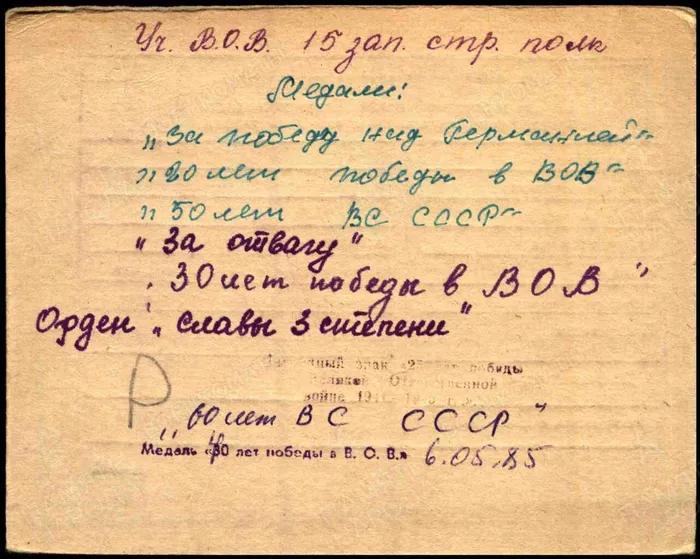 Уч. В.О.В. 15 зап. стр. полк
Медали:
„За победу над Германией"
„20 лет победы в ВОВ"
„50 лет ВС СССР"
„За отвагу"
„30 лет победы в ВОВ"
Орден „Славы 3 степени"
знак «25 лет победы
Великой Отечественной
войне 1941
Р
„60 лет ВС СССР"
Медаль «40 лет победы в В. О. В.» 6.05.85